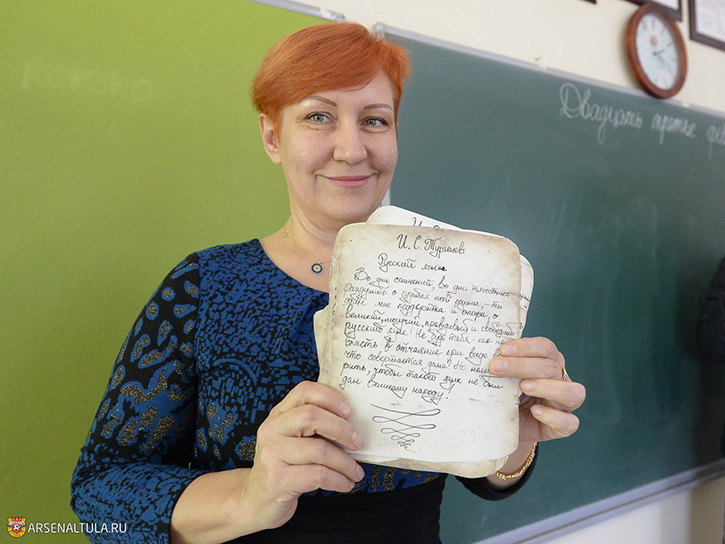 Двадцать третье фе
И. С. Тургенев
Русский язык
Во дни сомнений, во дни тягостных
раздумий о судьбах моей родины, – ты
один мне поддержка и опора, о
великий, могучий, правдивый и свободный
русский язык! Не будь тебя – как не
впасть в отчаяние при виде
что совершается дома? Но нель
рить, чтобы такой язык не был
дан великому народу!
ARSENALTULA.RU